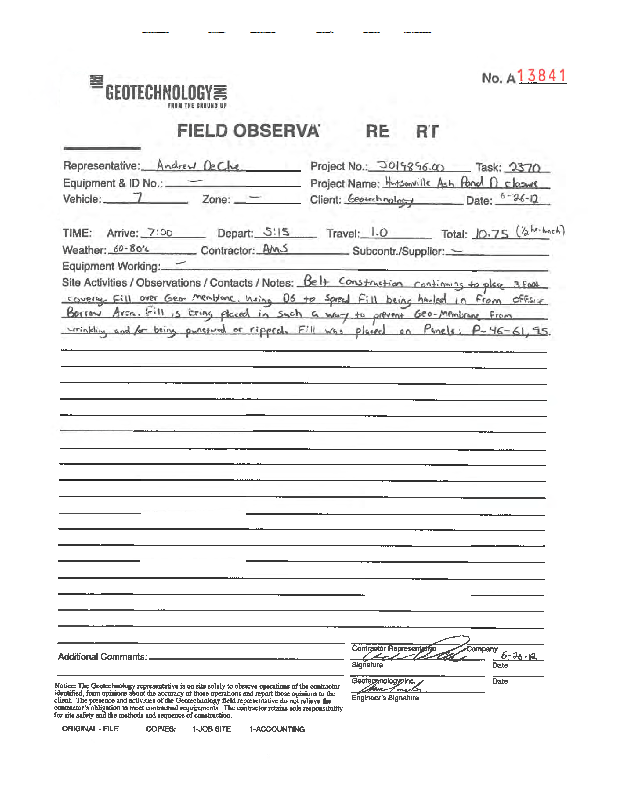 No. A13841
GEOTECHNOLOGY INC
FROM THE GROUND UP
FIELD OBSERVA RE RT
Representative: Andrew DeChe Project No.: J019896.00 Task: 2370
Equipment & ID No.: — Project Name: Hutsonville Ash Pond D closure
Vehicle: 7 Zone: — Client: Geotechnology Date: 6-26-12
TIME: Arrive: 7:00 Depart: 5:15 Travel: 1.0 Total: 10.75 (½ hr-lunch)
Weather: 60-80's Contractor: AMS Subcontr./Supplier: —
Equipment Working: —
Site Activities / Observations / Contacts / Notes: Belt Construction continuing to place 3 Foot
covering Fill over Geo Membrane. Using D5 to Spread Fill being hauled in From offsite
Borrow Area. Fill is being placed in such a way to prevent Geo-Membrane From
wrinkling and/or being punctured or ripped. Fill was placed on Panels: P-46-61, 95.
Additional Comments:
Contractor Representative Company
6-26-12
Signature Date
Geotechnology Inc. Date
Engineer's Signature
Notice: The Geotechnology representative is on site solely to observe operations of the contractor
identified, form opinions about the accuracy of those operations and report those opinions to the
client. The presence and activities of the Geotechnology field representative do not relieve the
contractor's obligation to meet contractual requirements. The contractor retains sole responsibility
for site safety and the methods and sequence of construction.
ORIGINAL - FILE COPIES: 1-JOB SITE 1-ACCOUNTING